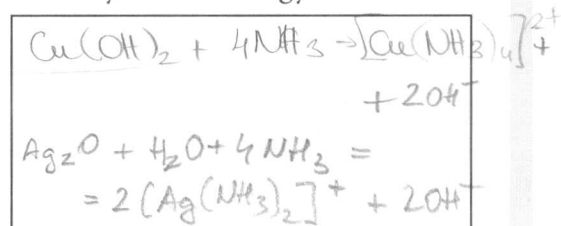 Cu(OH)₂ + 4NH₃ → [Cu(NH₃)₄]²⁺ +
+ 2OH⁻
Ag₂O + H₂O + 4NH₃ =
= 2 [Ag(NH₃)₂]⁺ + 2OH⁻